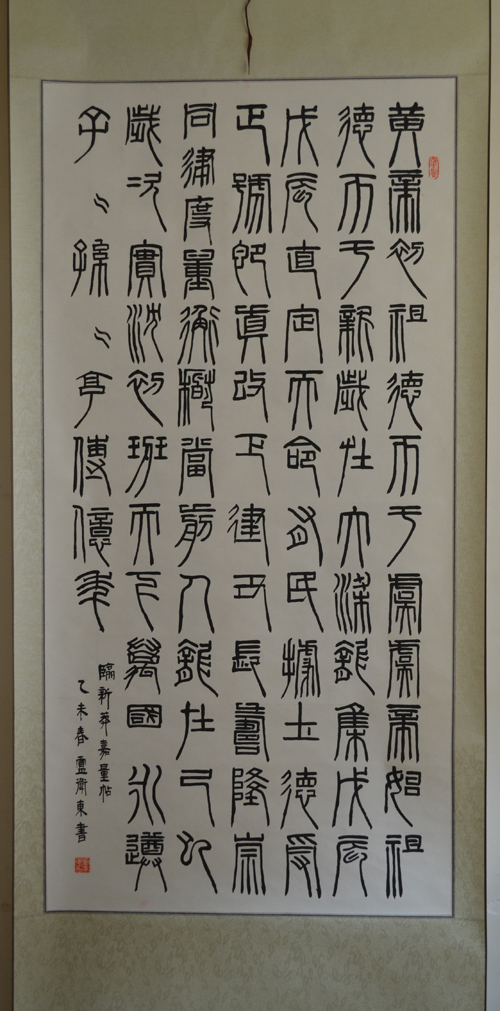 黄帝初祖德帀于虞虞帝始祖
德帀于新歲在大梁龍集戊辰
戊辰直定天命有民據土德受
正號即真改正建丑長壽隆崇
同律度量衡稽當前人龍在己巳
歲次實沈初班天下萬國永遵
子〻孫〻享傳億年
臨新莽嘉量帖
乙未春盧衛東書